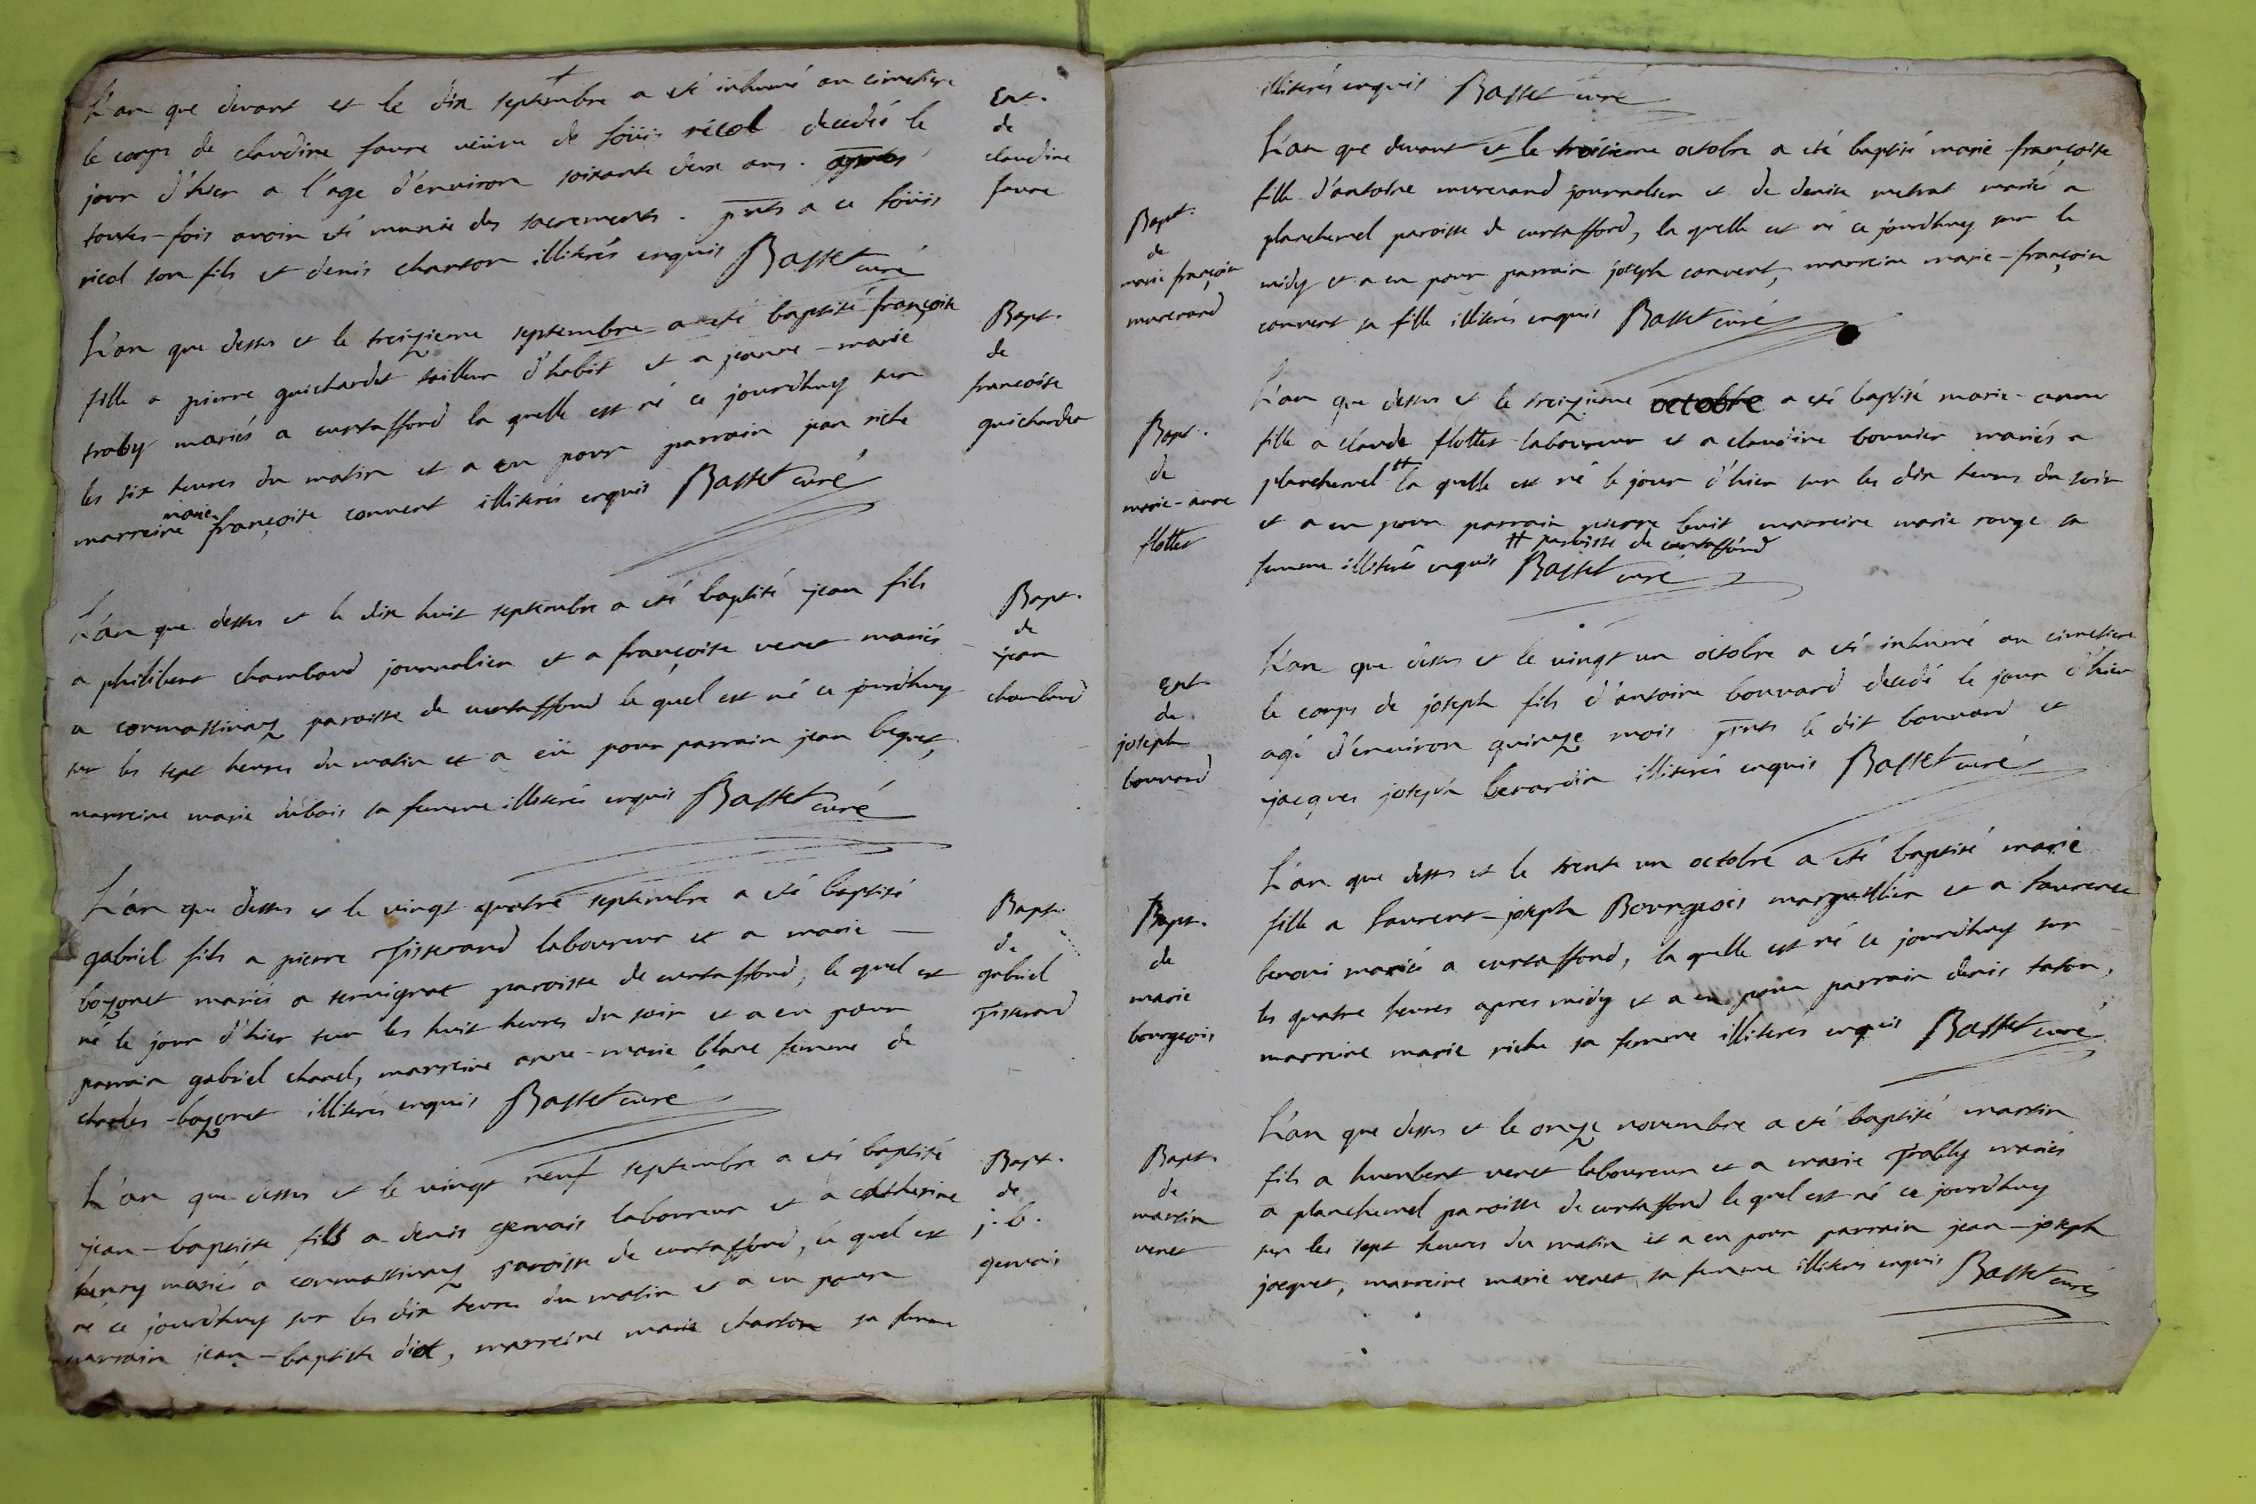 L'an que devant et le dix septembre a eté inhumé au cimetiere
le corps de claudine favre veüve de loüis ricol decedée le
jour d'hier a l'age d'environ soixante deux ans. apres
toutes-fois avoir eté munie des sacrements. pnts a ce loüis
ricol son fils et denis charton illiterés enquis Basset curé
Ent.
de
claudine
favre
L'an que dessus et le treizieme septembre a eté baptisé françoise
fille a pierre guichardet tailleur d'habit et a jeanne-marie
traby mariés a curtaffond la quelle est né ce jourdhuy sur
les six heures du matin et a eu pour parrain jean riche
marreine marie françoise convert illiterés enquis Basset curé
Bapt.
de
francoise
guichardet
L'an que dessus et le dix huit septembre a eté baptisé jean fils
a philibert chambard journalier et a françoise veret mariés
a cormassinaz paroisse de curtaffond le quel est né ce jourdhuy
sur les sept heures du matin et a eü pour parrain jean beguet,
marreine marie dubois sa femme illiterés enquis Basset curé
Bapt.
de
jean
chambard
L'an que dessus et le vingt quatre septembre a eté baptisé
gabriel fils a pierre Tisserand laboureur et a marie
bozonet mariés a servignat paroisse de curtaffond, le quel est
né le jour d'hier sur les huit heures du soir et a eu pour
parrain gabriel charel, marreine anne-marie blanc femme de
charles bozonet illiterés enquis Basset curé
Bapt.
de
gabriel
Tisserand
L'an que dessus et le vingt neuf septembre a eté baptisé
jean-baptiste fils a denis gervais laboureur et a catherine
henry mariés a cormassinaz paroisse de curtaffond, le quel est
né ce jourdhuy sur les dix heures du matin et a eu pour
parrain jean-baptiste diot, marreine marie charton sa femme
Bapt.
de
j. b.
gervais
illiterés enquis Basset curé
L'an que devant et le troisieme octobre a eté baptisé marie françoise
fille d'antoine murerand journalier et de denise metrat mariés a
planchemel paroisse de curtaffond, la quelle est né ce jourdhuy sur le
midy et a eu pour parrain joseph convert, marreine marie-françoise
convert sa fille illiterés enquis Basset curé
Bapt.
de
marie françoise
murerand
L'an que dessus et le treizieme octobre a eté baptisé marie-anne
fille a claude flottet laboureur et a claudine bouvier mariés a
planchemel # la quelle est né le jour d'hier sur les dix heures du soir
et a eu pour parrain pierre buit marreine marie rouge sa
# paroisse de curtaffond
femme illiterés enquis Basset curé
Bapt.
de
marie-anne
flottet
L'an que dessus et le vingt un octobre a eté inhumé au cimetiere
le corps de joseph fils d'antoine bouvard decedé le jour d'hier
agé d'environ quinze mois pnts le dit bouvard et
jacques joseph berardin illiterés enquis Basset curé
Ent.
de
joseph
bouvard
L'an que dessus et le trente un octobre a eté baptisé marie
fille a laurent-joseph Bourgeois marguillier et a laurence
benoni mariés a curtaffond, la quelle est né ce jourdhuy sur
les quatre heures apres midy et a eu pour parrain denis talon,
marreine marie riche sa femme illiterés enquis Basset curé
Bapt.
de
marie
bourgeois
L'an que dessus et le onze novembre a eté baptisé martin
fils a humbert veret laboureur et a marie Trably mariés
a planchemel paroisse de curtaffond le quel est né ce jourdhuy
sur les sept heures du matin et a eu pour parrain jean-joseph
joquet, marreine marie veret sa femme illiterés enquis Basset curé
Bapt.
de
martin
veret